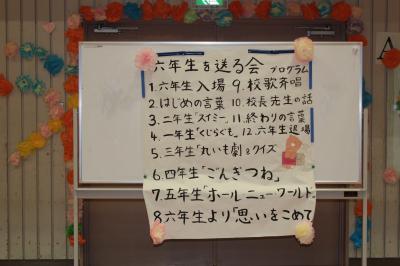 六年生を送る会 プログラム
1.六年生 入場
2.はじめの言葉
3.二年生「スイミー」
4.一年生「くじらぐも」
5.三年生「れいも劇&クイズ
6.四年生「ごんぎつね」
7.五年生「ホールニューワールド
8六年生より「思いをこめて
9.校歌斉唱
10.校長先生の話
11.終わりの言葉
12.六年生退場